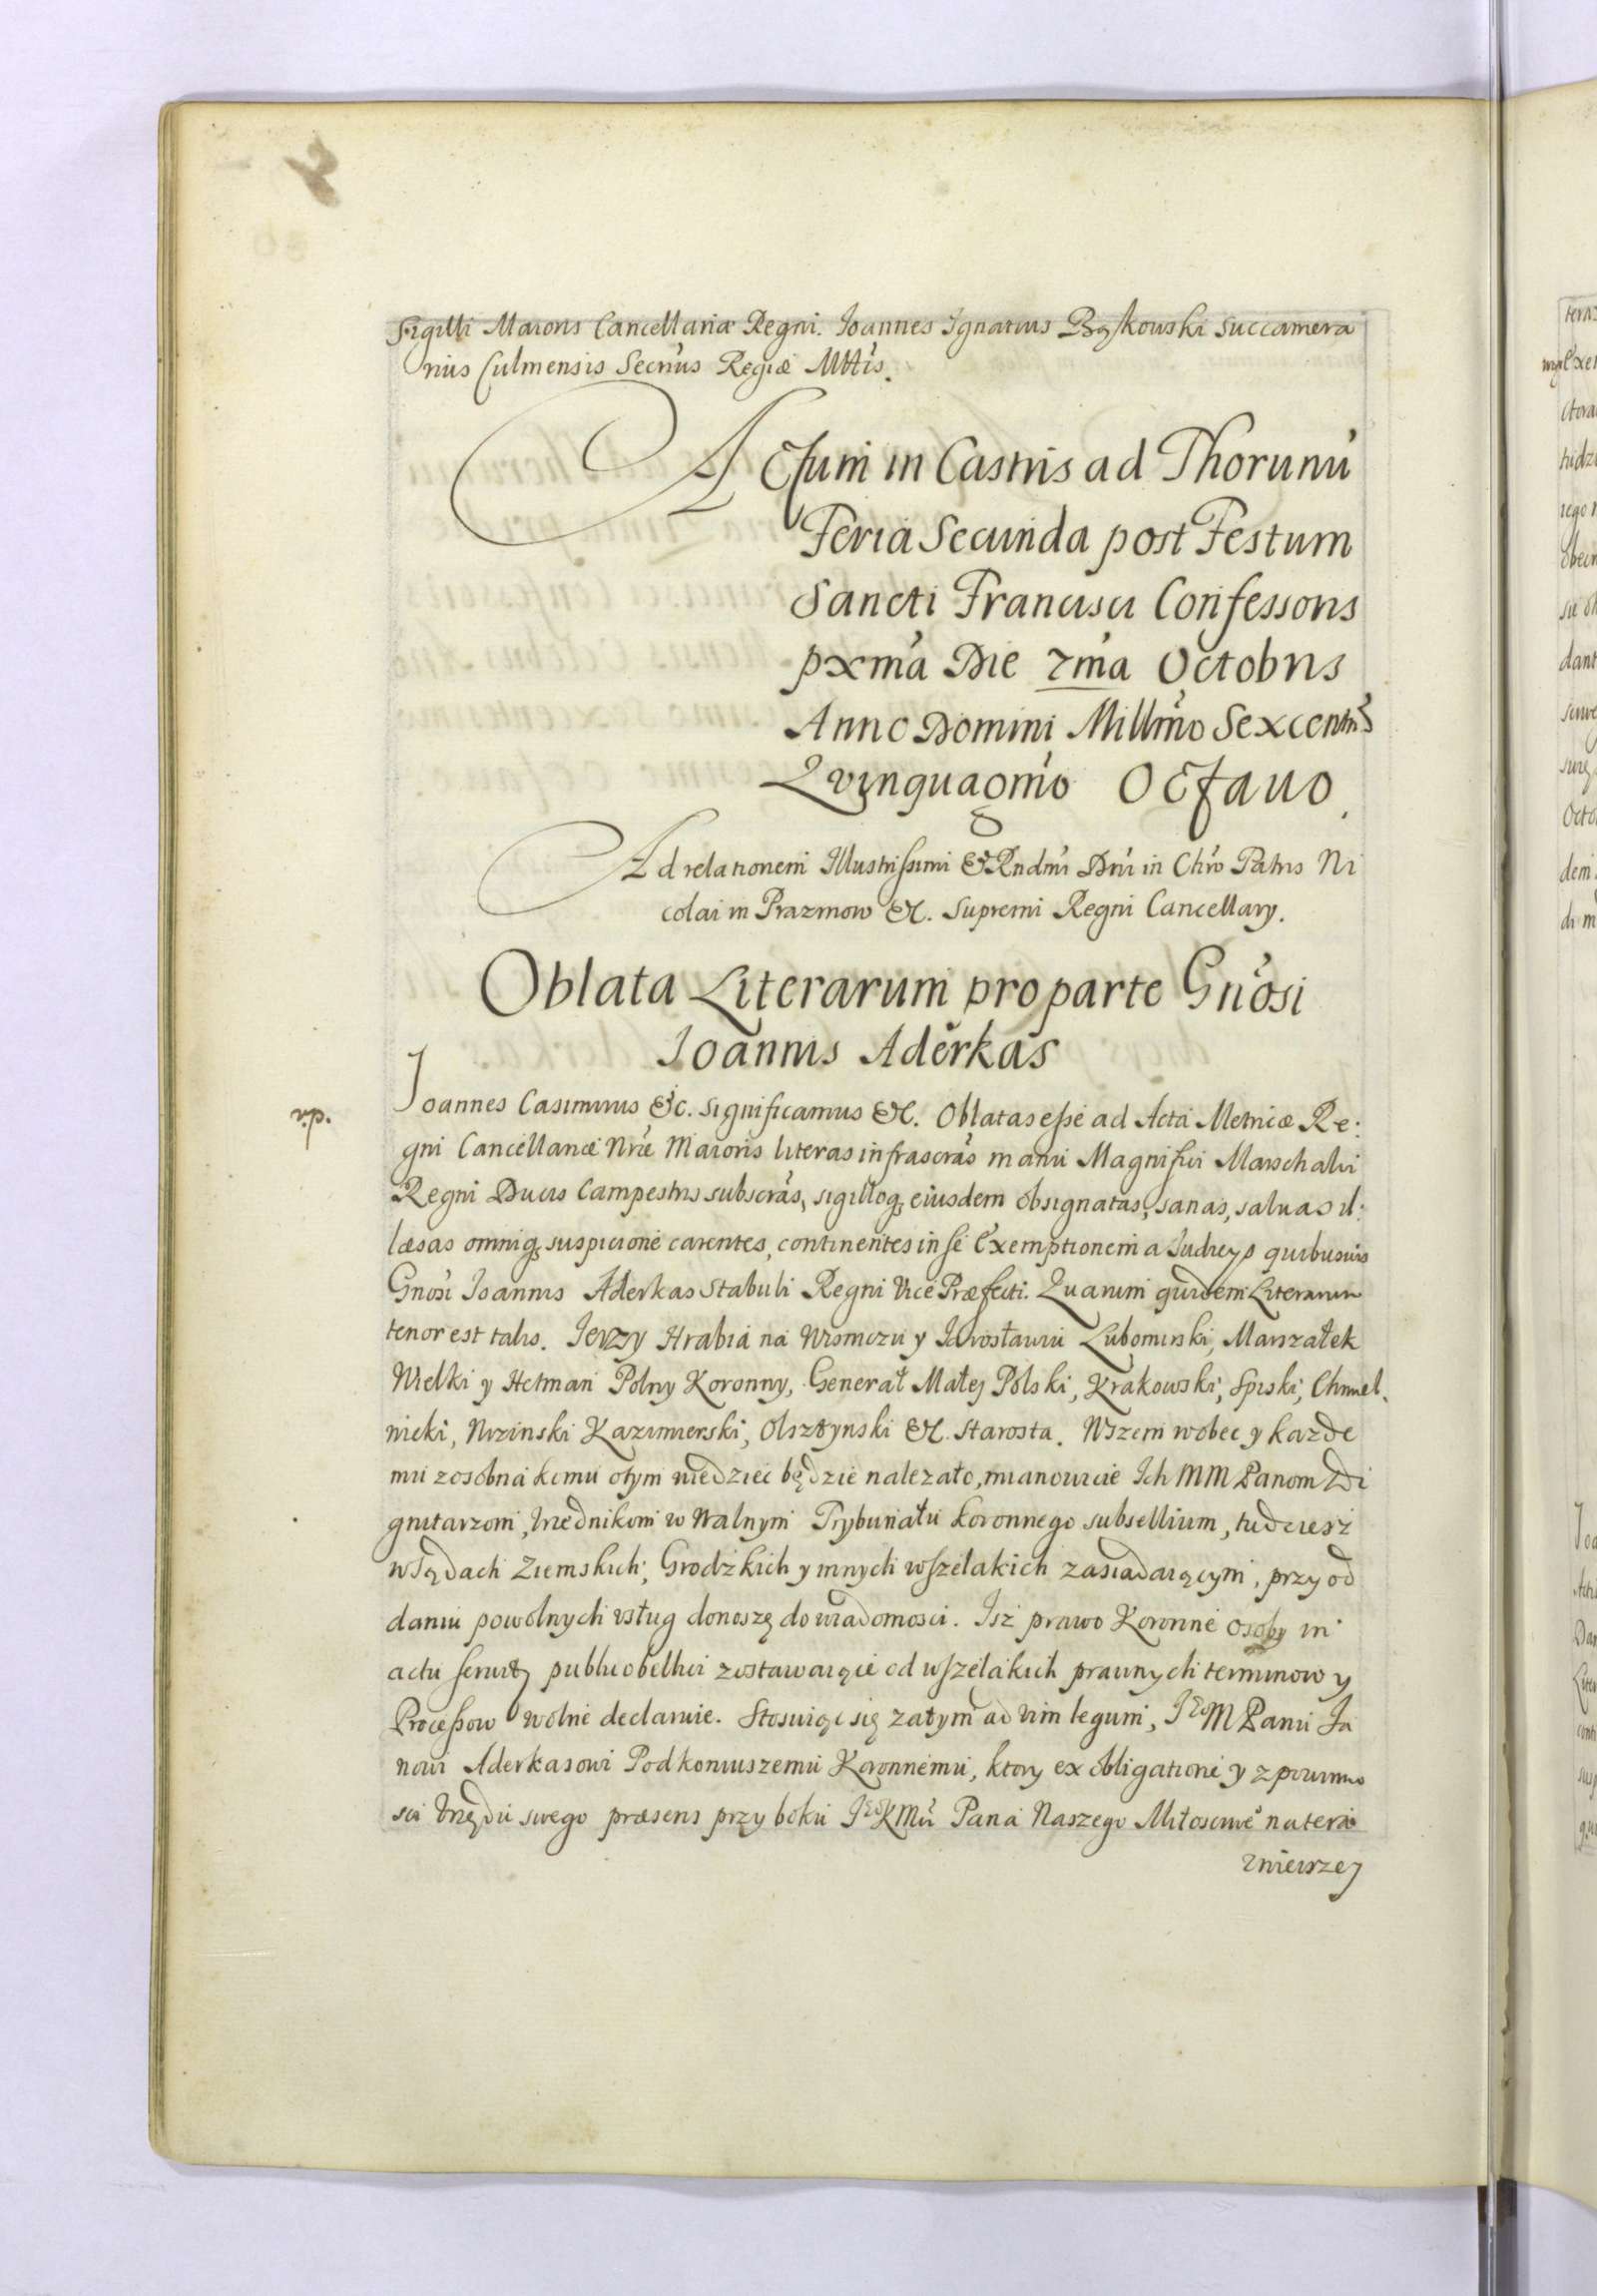 Sigilli Maioris Cancellariæ Regni. Ioannes Ignatius Bąkowski Succamera
rius Culmensis Secrius Regiæ Mttis.
Actum in Castris ad Thorunu
Feria Secunda post Festum
Sancti Francisci Confessoris
pxma Die 7ma Octobris
Anno Domini Millmo Sexcentms
Qvinquagmo Octauo.
Ad relationem Illustrissimi & Rndmi Dni in Chro Patris Ni
colai in Prazmow &c. Supremi Regni Cancellary.
Oblata Literarum pro parte Gnosi
Ioannis Aderkas
Ioannes Casimirus &c. Significamus &c. Oblatas esse ad Acta Metricæ Re:
gni Cancellariæ Nræ Maioris literas infrascras manu Magnifici Marschalci
Regni Ducis Campestris subscras, sigilloq eiusdem obsignatas, sanas, saluas il:
læsas omniq suspicione carentes, continentes in se Exemptionem a Iudicys quibusuis
Gnosi Ioannis Aderkas Stabuli Regni Vice Præfecti. Quarum quidem Literarum
tenor est talis. Ierzy Hrabia na Wisniczu y Iarosławiu Lubomirski, Marszałek
Wielki y Hetman Polny Koronny, Generał Małej Polski, Krakowski, Spiski, Chmiel.
nicki, Nizinski Kazimierski, Olsztynski &c. Starosta. Wszem wobec y kazde
mu zosobna komu otym wiedziec będzie nalezało, mianowicie Ich MM Panom Di
gnitarzom, Vrzednikom w Walnym Trybunału Koronnego subsellium, tudziesz
w Sądach Ziemskich, Grodzkich y innych wszelakich zasiadaiącym, przy od
daniu powolnych vsług donoszę do wiadomosci. Isz prawo Koronne osoby in
actu seruity publico bellici zostawaiące od wszelakich prawnych terminow y
Processow wolne declaruie. Stosuiąc się zatym ad vim legum, IegoM Panu Ia
nowi Aderkasowi Podkoniuszemu Koronnemu, ktory ex obligatione y z powinno
sci Vrzędu swego præsens przy boku IegoKMci Pana Naszego Miłosciwe na tera
znieiszej